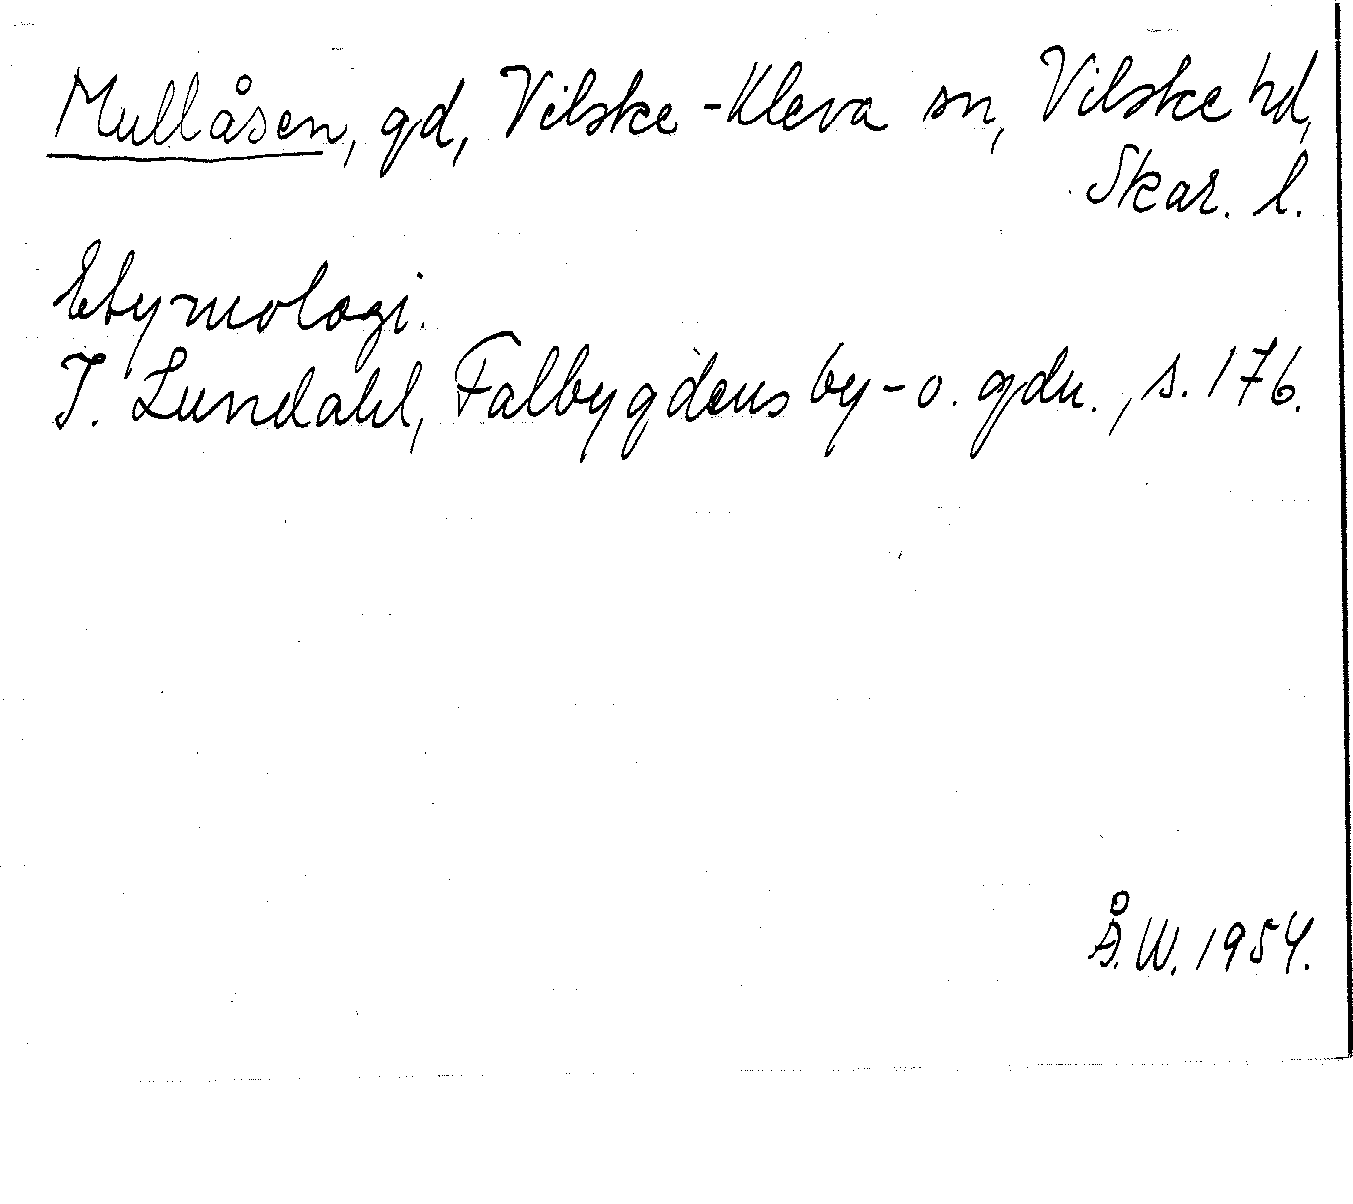 Mullåsen, gd, Vilske-Kleva sn, Vilske hd,
Skar. l.
Etymologi.
I. Lundahl, Falbygdens by- o. gdn., s. 176.
Å.W. 1954.